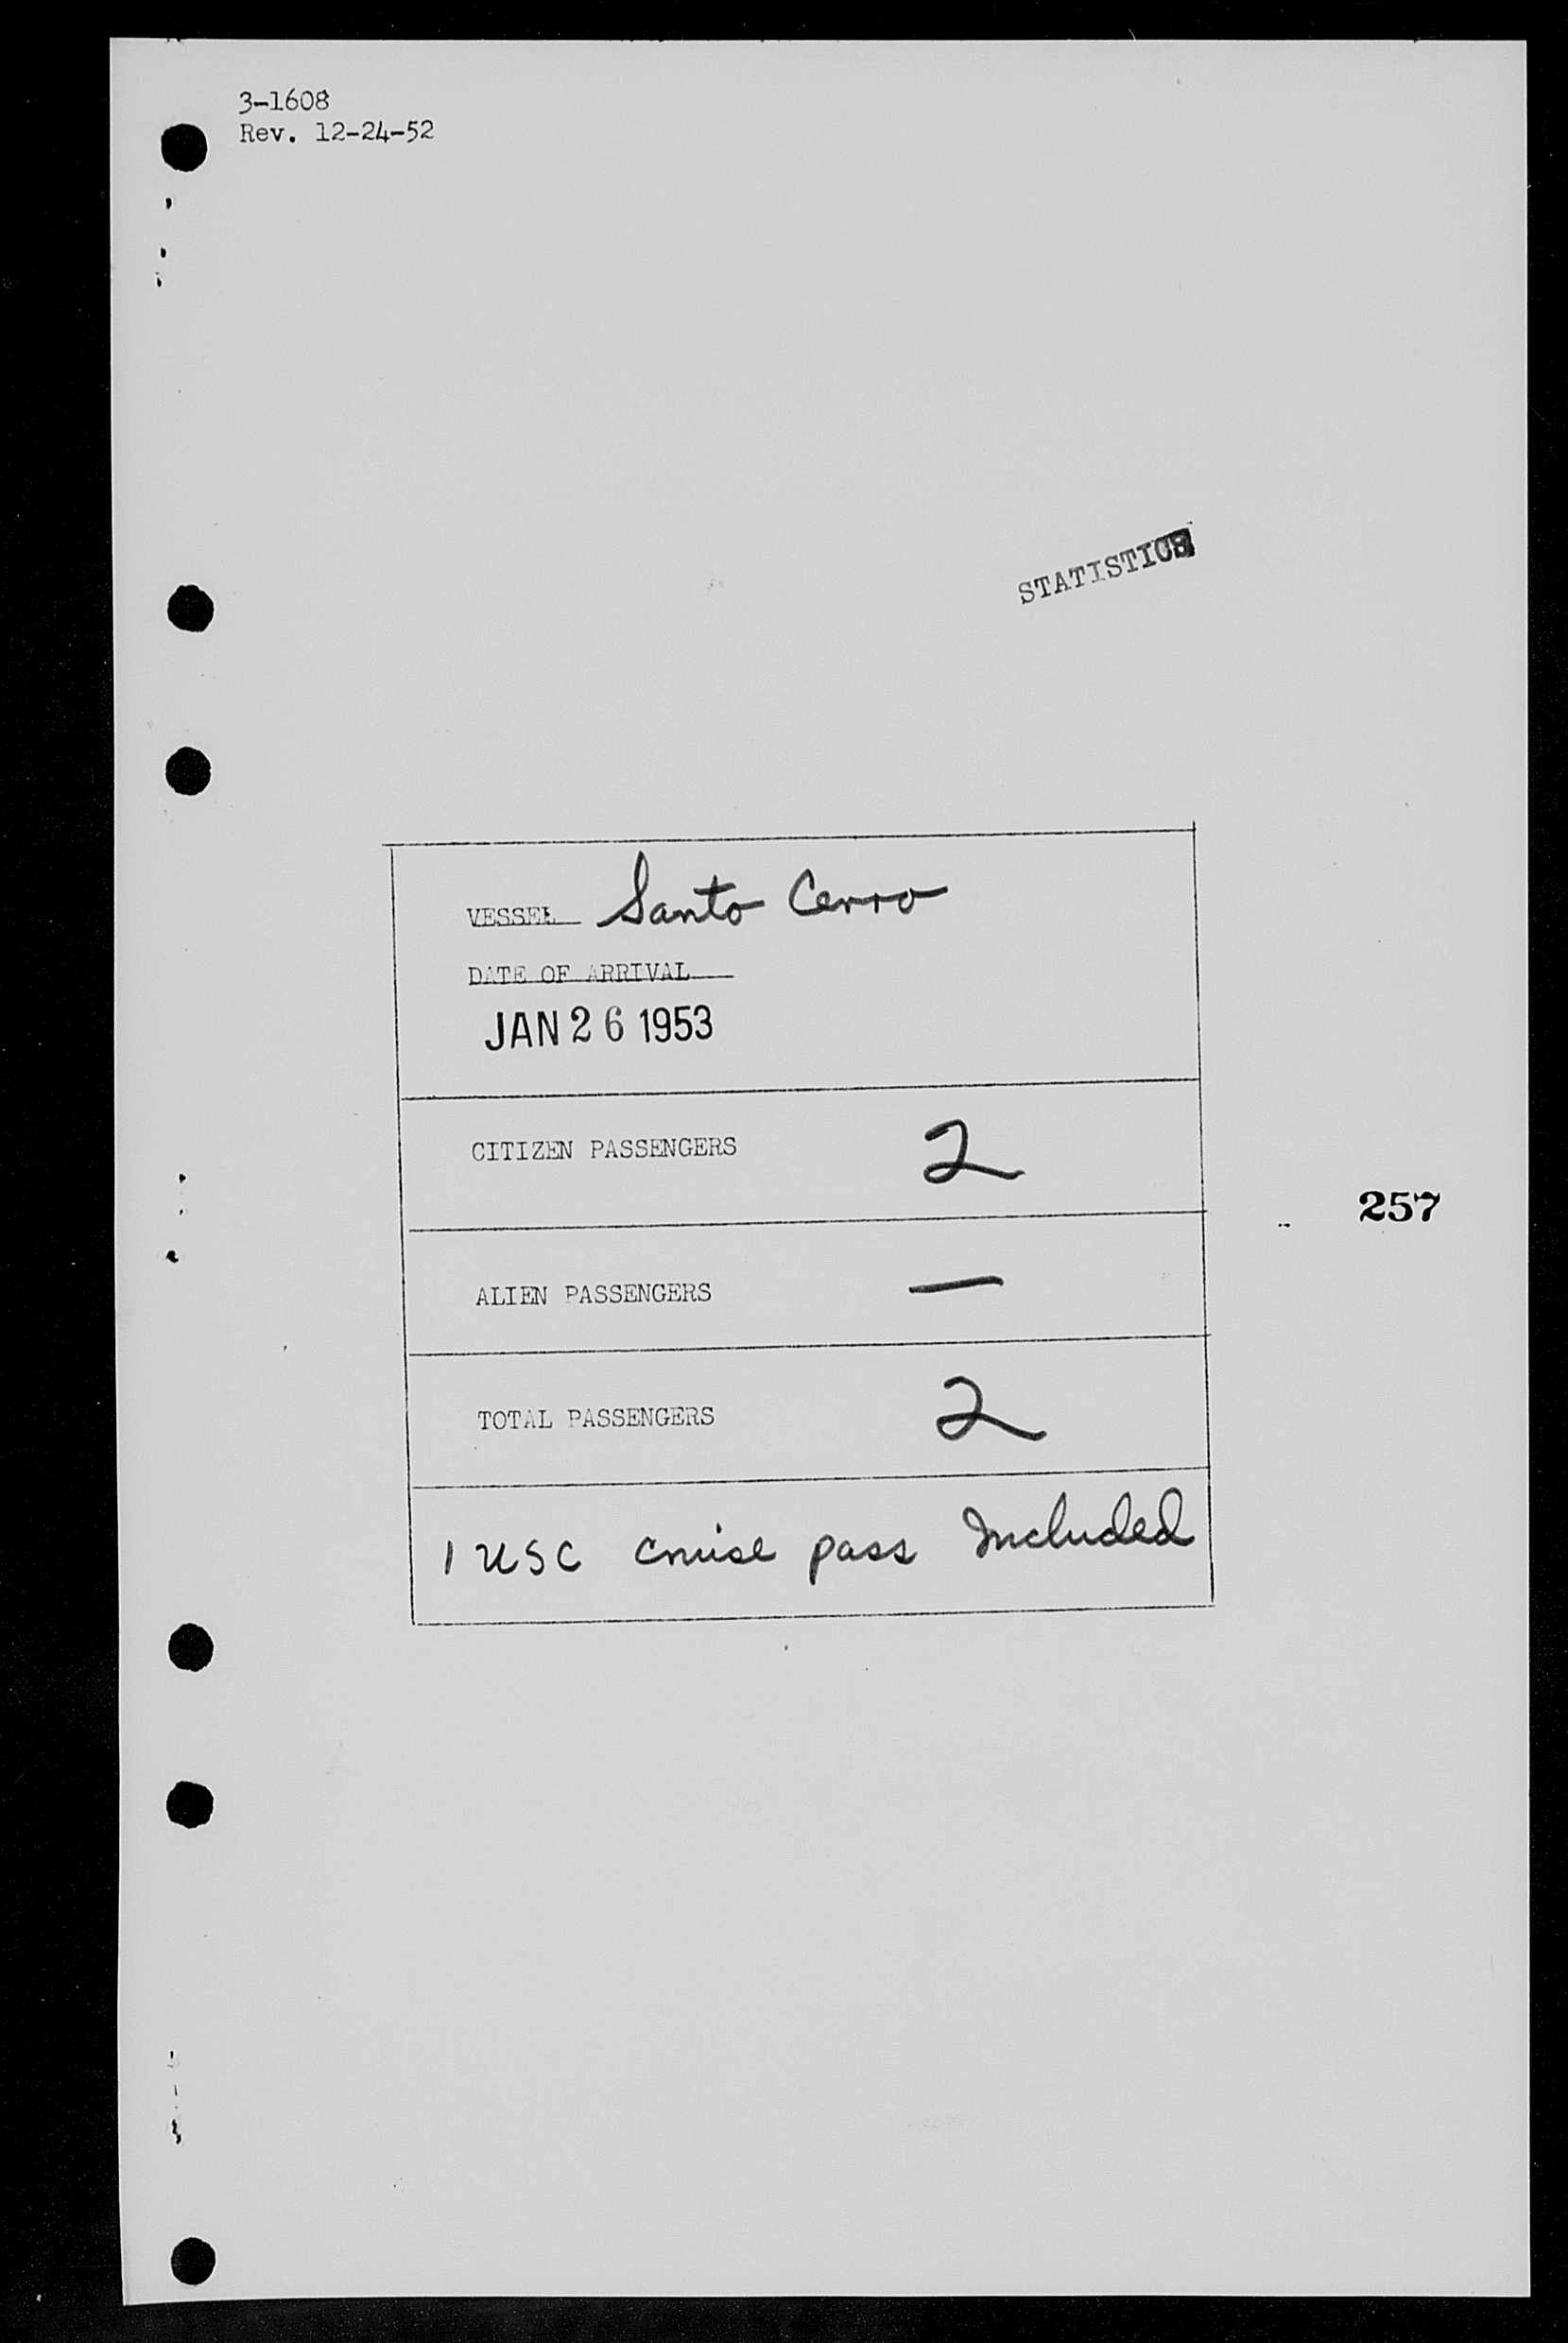 3-1608
Rev. 12-24-52
STATISTICS
VESSEL Santo Cerro
DATE OF ARRIVAL
JAN 26 1953
CITIZEN PASSENGERS 2
257
ALIEN PASSENGERS —
TOTAL PASSENGERS 2
1 USC cruise pass Included